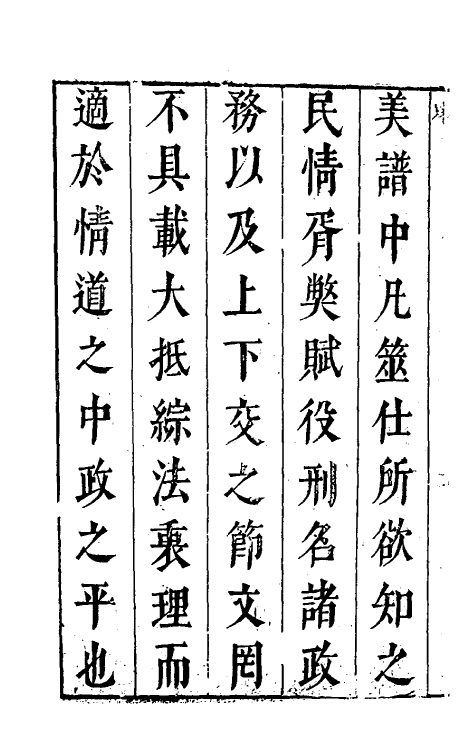 美譜中凡筮仕所欲知之
民情胥獘賦役刑名諸政
務以及上下交之節文罔
不具載大抵綜法衷理而
適於情道之中政之平也